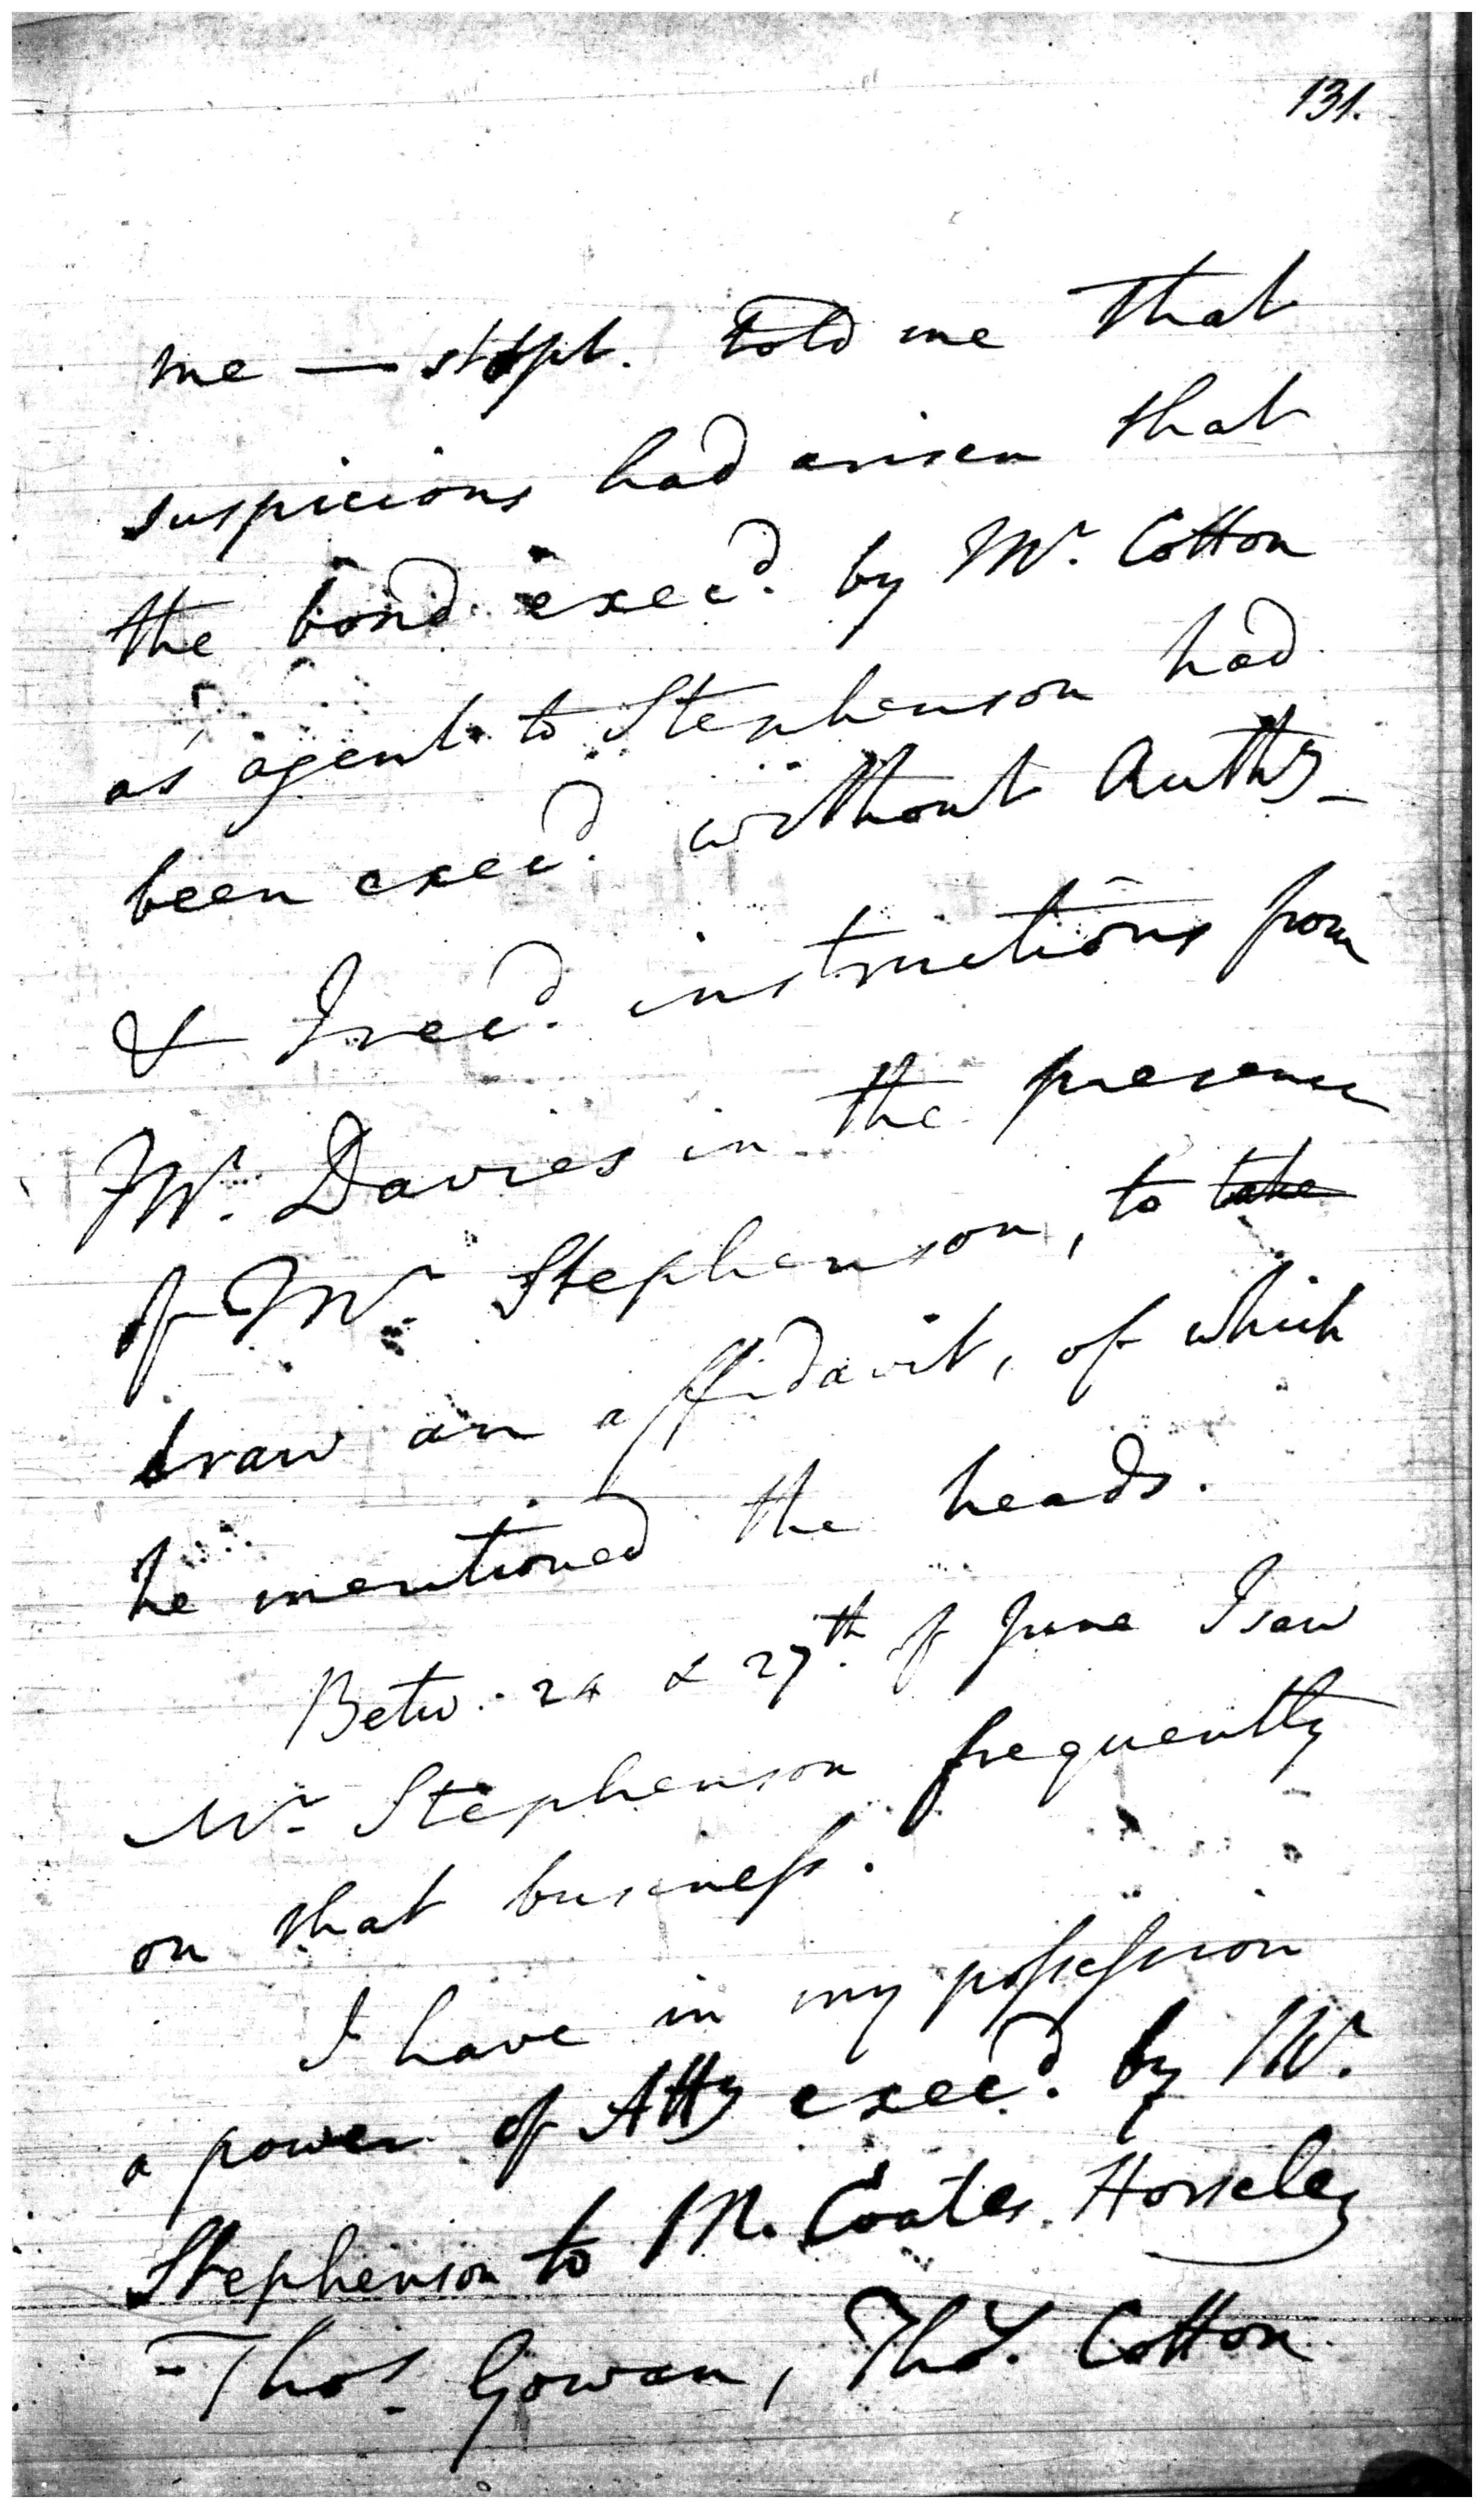 131.
me — stept. told me that
suspicions had arisen that
the bond execd. by Mr. Cotton
as agent to Stephenson had
been execd. without Authy_
& I recd. instructions from
Mr. Davies in the presence
of Mr. Stephenson, to take
draw an affidavit, of which
he mentioned the heads.
Betw. 24 & 27th. of June I saw
Mr. Stephenson frequently
on that business.
I have in my possession
a power of Atty execd. by Mr.
Stephenson to M. Coates Horseley
Thos. Gowan, Thos. Cotton